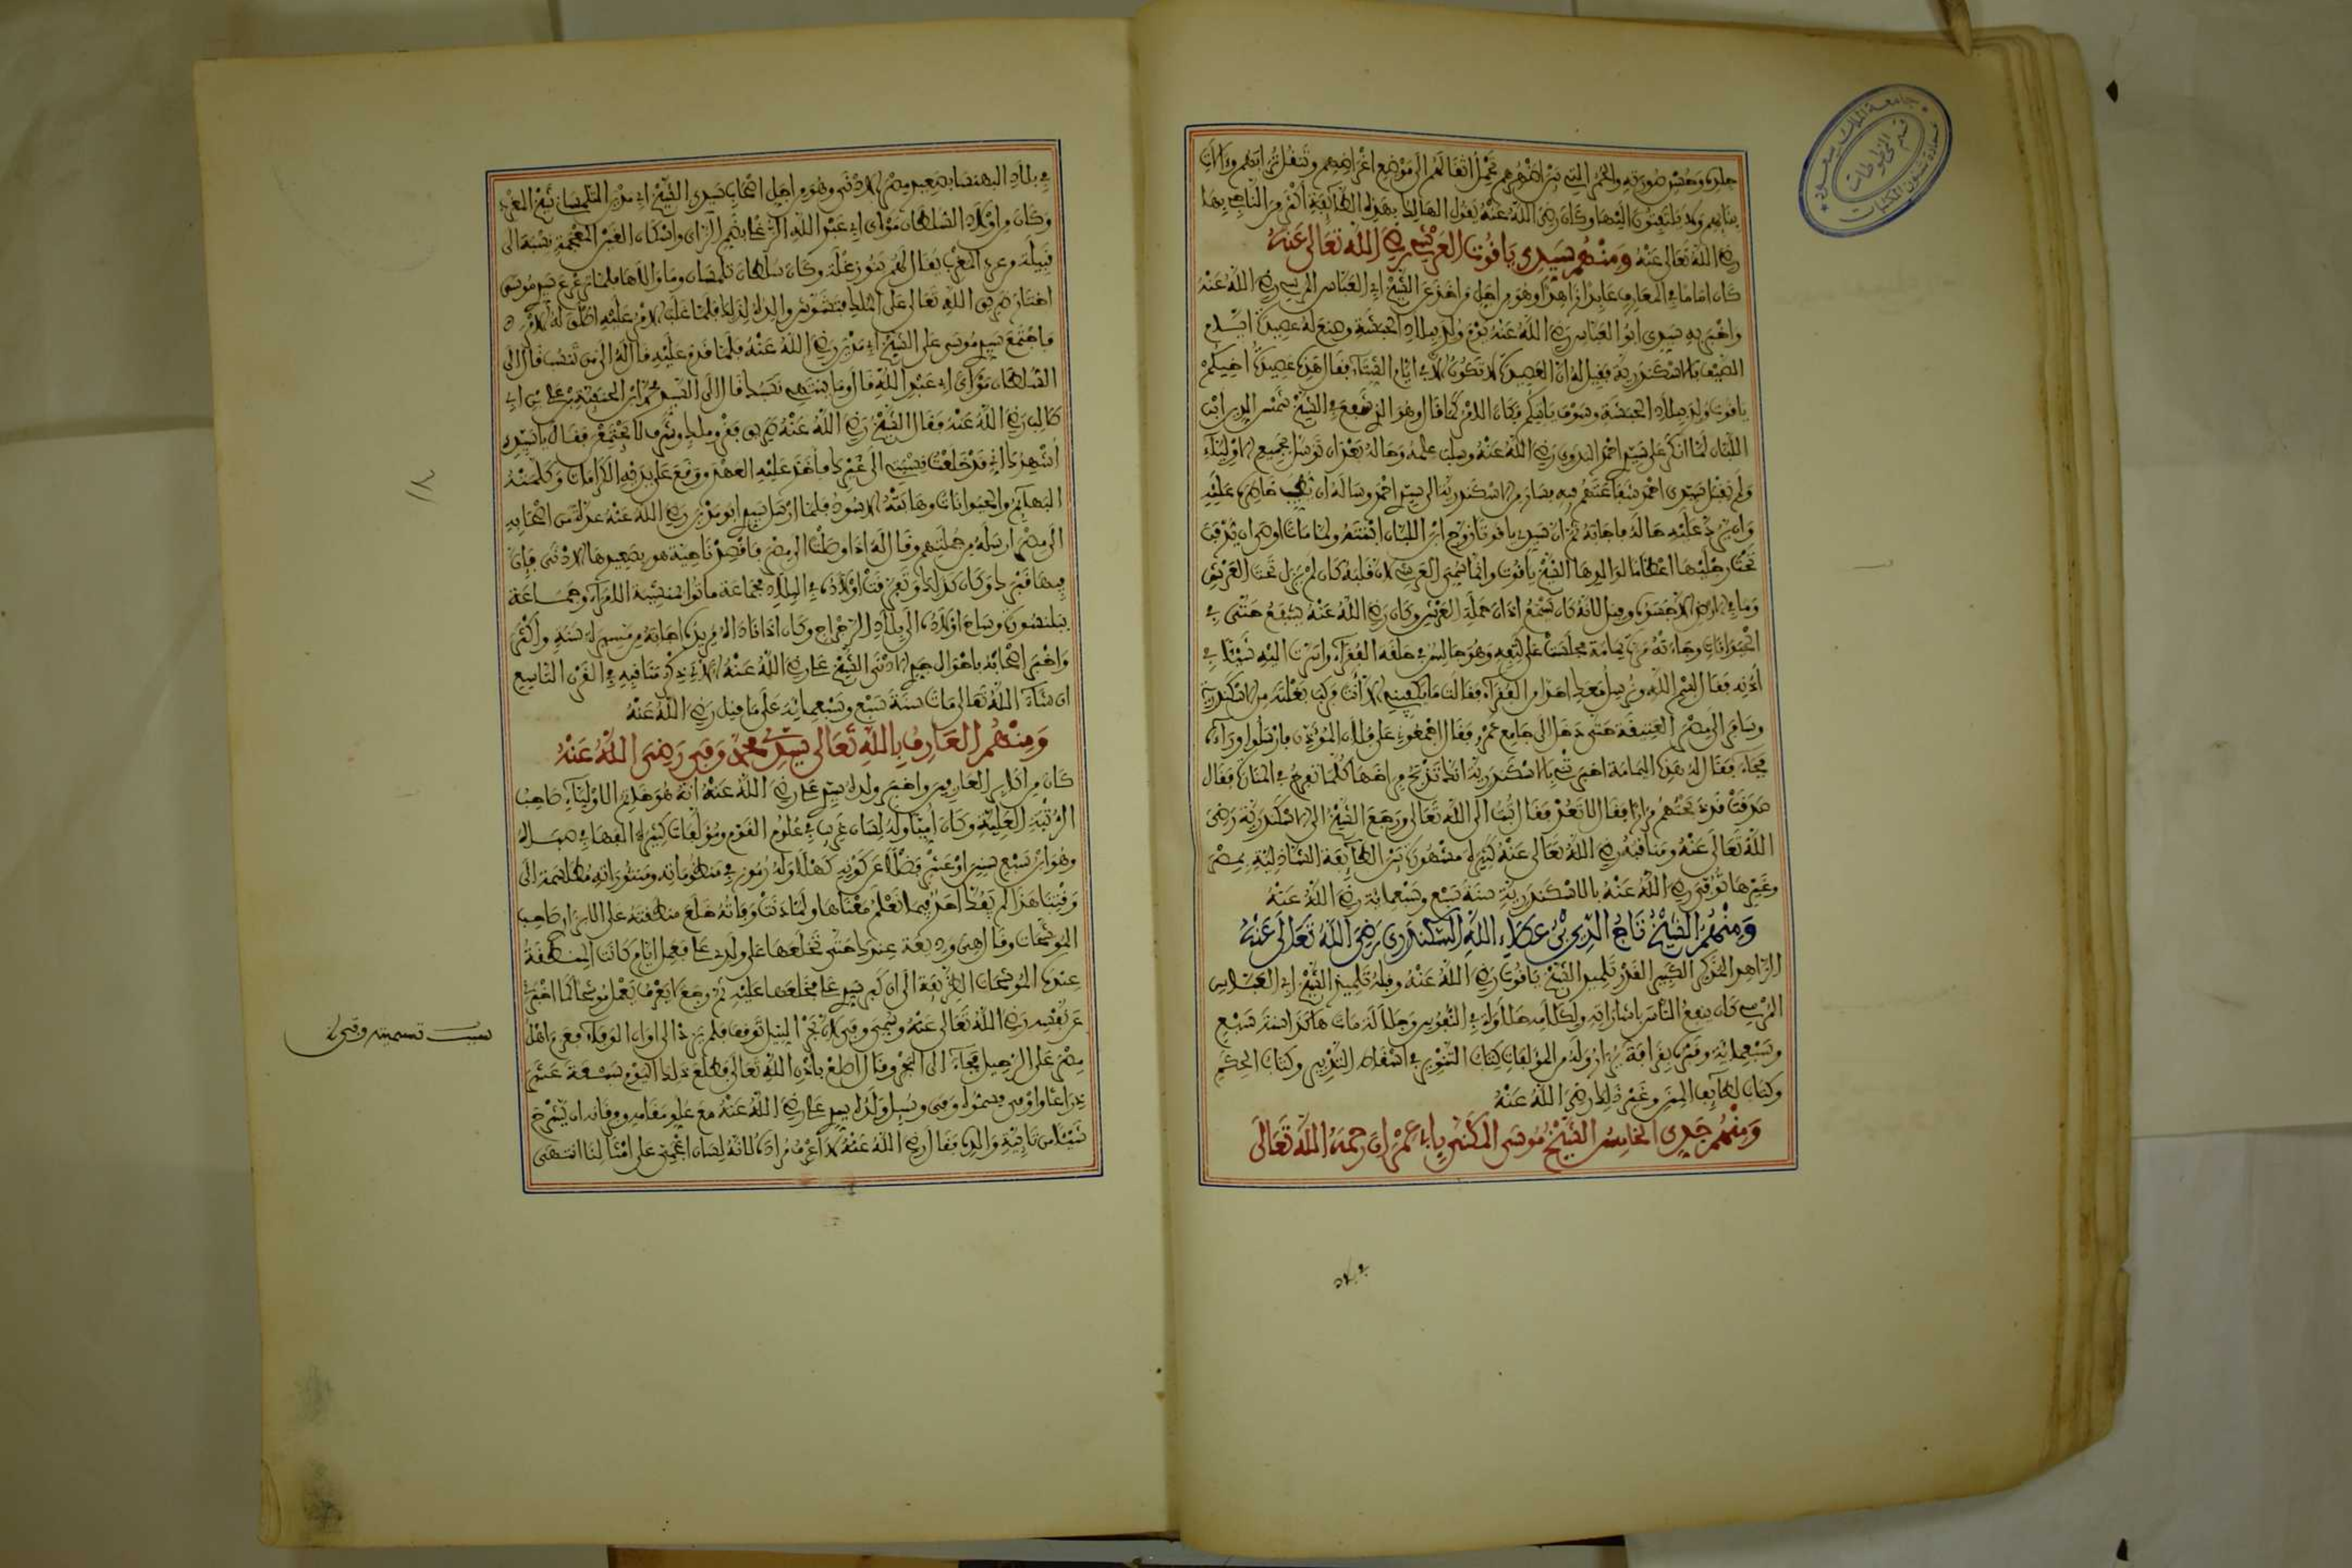 جامعة الملك سعود
عمادة شؤون المكتبات
قسم المخطوطات
رضي الله تعالى عنه ومنهم سيدي ياقوت العرشي رضي الله تعالى عنه
كان اماما في المعارف عابدا زاهدا وهو من اجل من اخذ عن الشيخ ابي العباس المرسي رضي الله عنه
واخبر به سيدي ابو العباس رضي الله عنه يوم ولد ببلاد الحبشة وصنع له عصيدة ايام
الصيف بالاسكندرية فقيل له ان العصيدة لا تكون الا في ايام الشتاء فقال هذه عصيدة اخيكم
ياقوت ولد ببلاد الحبشة وسوف ياتيكم فكان الامر كما قال وهو الذي شفع في الشيخ شمس الدين ابن
اللبان لما انكر على سيدي احمد البدوي رضي الله عنه وسلب علمه وحاله بعد ان توسل بجميع الاولياء
ولم يقبل سيدي احمد شفاعتهم فيه فسار من الاسكندرية الى سيدي احمد وساله ان يطيب خاطره عليه
وان يرد عليه حاله فاجابه ثم ان سيدي ياقوتا زوج ابن اللبان ابنته ولما مات اوصى ان يدفن
تحت رجليها اعظاما لوالدها الشيخ ياقوت وانما سمي العرشي لان قلبه كان لم يزل تحت العرش
وما في الارض الا جسده وقيل لانه كان يسمع اذان حملة العرش وكان رضي الله عنه يشفع حتى في
الحيوانات وجاءته مرة يمامة فجلست على كتفه وهو جالس في حلقة الفقراء واسرت اليه شيئا في
اذنه فقال بسم الله ونرسل معك احدا من الفقراء فقالت ما يكفيني الا انت فركب بغلته من الاسكندرية
وسافر الى مصر العتيقة حتى دخل الى جامع عمرو فقال اجمعوني على فلان المؤذن فارسلوا وراءه
فجاء فقال له هذه اليمامة اخبرتني بالاسكندرية انك تذبح فراخها كلما تفرخ في المنارة فقال
صدقت قد ذبحتهم مرارا فقال لا تعد فقال تبت الى الله تعالى ورجع الشيخ الى الاسكندرية رضي
الله تعالى عنه ومناقبه رضي الله تعالى عنه كثيرة مشهورة بين الطائفة الشاذلية بمصر
وغيرها توفي رضي الله عنه بالاسكندرية سنة سبع وسبعمائة رضي الله عنه
ومنهم الشيخ تاج الدين بن عطاء الله السكندري رضي الله تعالى عنه
الزاهد المذكر الكبير القدر تلميذ الشيخ ياقوت رضي الله عنه وقبله تلميذ الشيخ ابي العباس
المرسي كان ينفع الناس باشاراته ولكلامه حلاوة في النفوس وجلالة مات هكذا سنة سبع
وسبعمائة وقبره بقرافة يزار وله من المؤلفات كتاب التنوير في اسقاط التدبير وكتاب الحكم
وكتاب لطائف المنن وغير ذلك رضي الله عنه
ومنهم جدي الخامس الشيخ موسى المكنى بابي عمران رحمه الله تعالى
في بلاد
في بلاد البهنسا بصعيد مصر الادنى وهو من اجل اصحاب سيدي الشيخ ابي مدين التلمساني شيخ المغرب
وكان من اولاد السلطان مولاي ابي عبد الله الزغلي بضم الزاي واسكان الغين المعجمة نسبة الى
قبيلة من عرب المغرب يقال لهم بنو زغلة وكان سلطان تلمسان وما والاها فلما ترعرع سيدي موسى
اختار طريق الله تعالى على الملك فتشوش والده لذلك فلما غلب الامر عليه اطلق له الامر
فاجتمع سيدي موسى على الشيخ ابي مدين رضي الله عنه فلما قدم عليه قال له الى من تنتسب قال الى
السلطان مولاي ابي عبد الله قال وما ينتهي نسبك قال الى السيد محمد ابن الحنفية بن علي بن ابي
طالب رضي الله عنه فقال الشيخ رضي الله عنه طريق فقر وملك وشرف لا يجتمعن فقال يا سيدي
اشهدك اني قد خلعت نسبتي الى غيرك فاخذ عليه العهد ووقع على يديه الكرامات وكلمته
البهائم والحيوانات وهابته الاسود فلما ارسل سيدي ابو مدين رضي الله عنه عدة من اصحابه
الى مصر ارسله من جملتهم وقال له اذا وصلت الى مصر فاقصد ناحية هو بصعيدها الادنى فان
فيها قبرك وكان كذلك وتفرقت اولاده في البلاد فجماعة ماتوا بمنشية الامراء وجماعة
ببلنسورة وساح اولاده الى بلاد الرجراج وكان اذا ناداه مريده اجابه من مسيرة سنة واكثر
واخبر اصحابه باحوال جدي الادنى الشيخ علي رضي الله عنه الاتي ذكر مناقبه في القرن التاسع
ان شاء الله تعالى مات سنة سبع وسبعمائة على ما قيل رضي الله عنه
ومنهم العارف بالله تعالى سيدي محمد وفى رضي الله عنه
كان من اكابر العارفين واخبر ولده سيدي علي رضي الله عنه انه هو خاتم الاولياء صاحب
الرتبة العلية وكان اميا وله لسان غريب في علوم القوم ومؤلفات كثيرة الفها في صباه
وهو ابن سبع سنين او عشر فضلا عن كونه كهلا وله رموز في منظوماته ومنثوراته مطلسمة الى
وقتنا هذا لم يفك احد فيما نعلم معناها ولما دنت وفاته خلع منطقته على الابزاري صاحب
الموشحات وقال هي وديعة عندك حتى تخلعها على ولدي علي فعمل ايام كانت المنطقة
عنده الموشحات الظريفة الى ان كبر سيدي علي فخلعها عليه ثم رجع لا يعرف يعمل موشحا كما اخبر
عن نفسه رضي الله تعالى عنه وسمي وفى لان بحر النيل توقف فلم يزد الى اوان الوفاء فعزم اهل
مصر على الرحيل فجاء الى البحر وقال اطلع باذن الله تعالى فطلع ذلك اليوم سبعة عشر
ذراعا واوفى فسموه وفى وسئل ولده سيدي علي رضي الله عنه مع علو مقامه وعرفانه ان يشرح
شيئا من تائية والده فقال رضي الله عنه لا اعرف مراده لانه لسان اعجمي على امثالنا انتهى
سبب تسميته وفى
١١٨